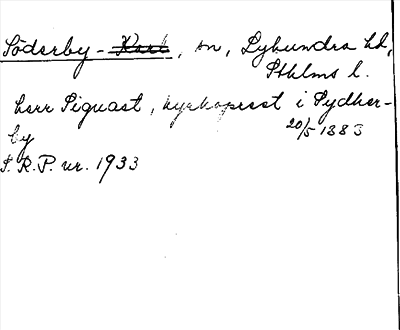 Söderby - Karl, sn, Lyhundra hd,
Sthlms l.
herr Siguast, kyrkoprest i Sydher-
by
20/5 1383
S.R.P. nr. 1933